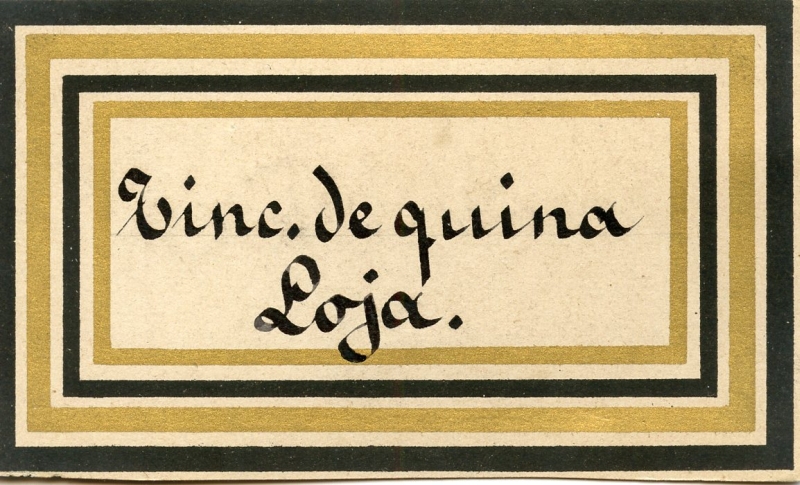 Tinc. de quina
Loja.